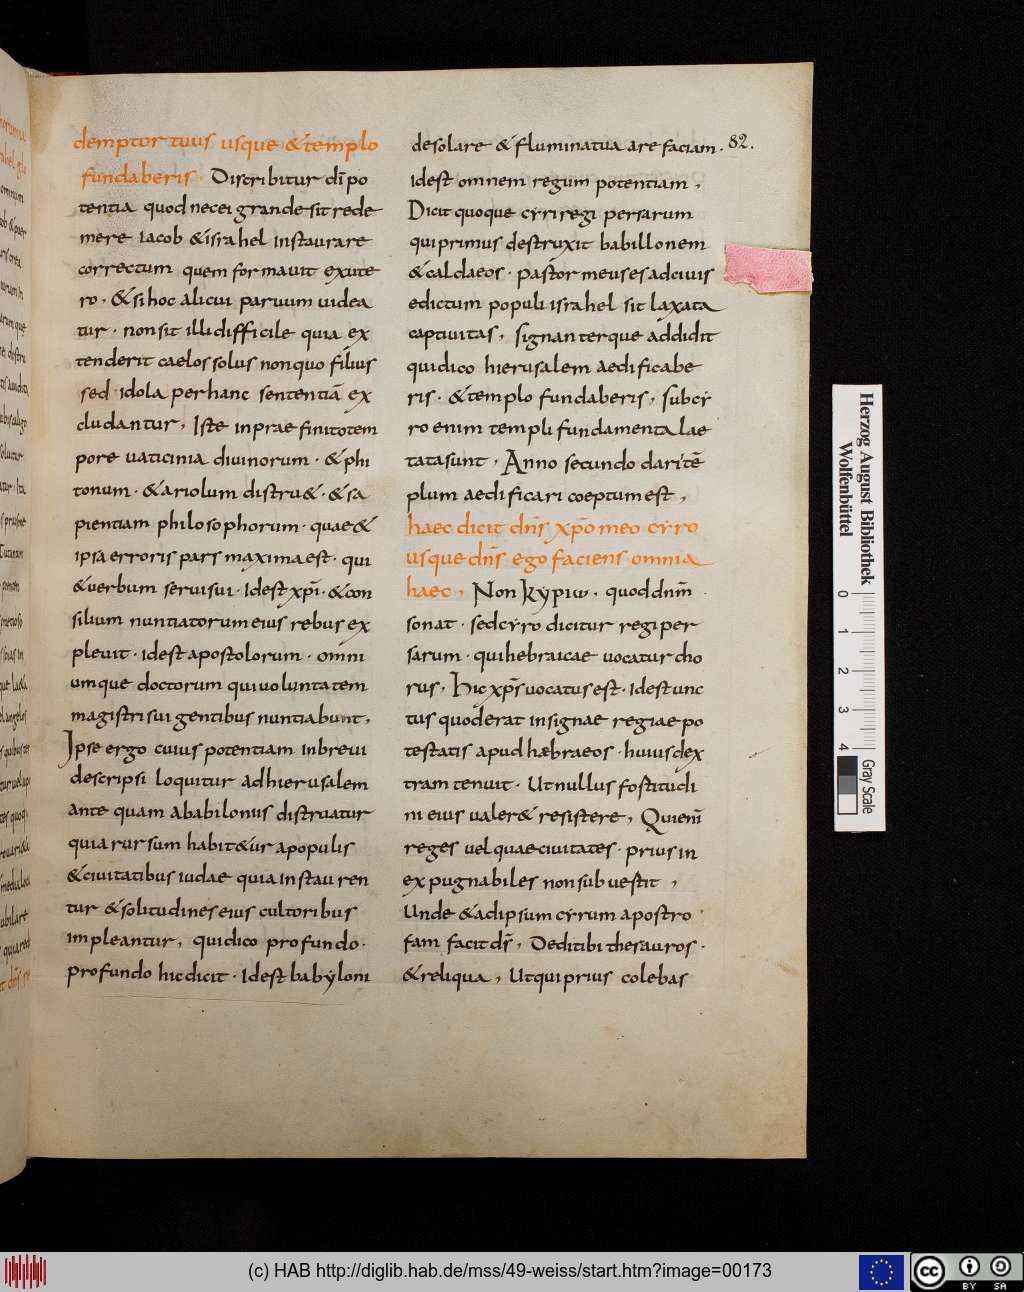 demptor tuus usque &templo
fundaberis · Discribitur dī po
tentia quod nec ei grande sit rede
mere iacob &israhel instaurare
correctum quem formauit ex ute
ro · &si hoc alicui paruum uidea
tur · non sit illi difficile quia ex
tenderit caelos solus non quo filius
sed idola per hanc sententiā ex
cludantur, Iste in praefinito tem
pore uaticinia diuinorum · &phi
tonum · &ariolum distru& · &sa
pientiam philosophorum · quae&
ipsa erroris pars maxima est · qui
&uerbum serui sui · Id est xpī · &con
silium nuntiatorum eius rebus ex
pleuit · id est apostolorum · omni
umque doctorum qui uoluntatem
magistri sui gentibus nuntiabunt,
Ipse ergo cuius potentiam in breui
descripsi loquitur ad hierusalem
ante quam a babilonus distruatur
quia rursum habit&ur a populis
&ciuitatibus iudae quia instauren
tur &solitudines eius cultoribus
impleantur, qui dico profundo ·
profundo hic dicit · Id est babyloni
desolare &flumina tua arefaciam ·
82.
id est omnem regum potentiam,
Dicit quoque cyri regi persarum
qui primus destruxit babillonem
&caldaeos · pastor meus es ad cuius
edictum populi israhel sit laxata
captiuitas, signanterque addidit
qui dico hierusalem aedificabe
ris · &templo fundaberis, sub cy
ro enim templi fundamenta lae
tata sunt, Anno secundo dari tē
plum aedificari coeptum est,
haec dicit dn̄s xp̄o meo cyro
usque dn̄s ego faciens omnia
haec, Non kypiω · quod dnm̄
sonat · sed cyro dicitur regi per
sarum · qui hebraicae uocatur cho
rus, Hic xpr̄s uocatus est · Id est unc
tus quod erat insignae regiae po
testatis apud hæbraeos · huius dex
tram tenuit · Ut nullus fostitudi
ni eius ualer& resistere, Qui enī
reges uel quae ciuitates · prius in
expugnabiles non subuestit,
Unde &ad ipsum cyrum apostro
fam facit ds̄, Dedi tibi thesauros ·
&reliqua, Ut qui prius colebas
Herzog August Bibliothek
Wolfenbüttel
0 1 2 3 4
Gray Scale
(c) HAB http://diglib.hab.de/mss/49-weiss/start.htm?image=00173
cc BY SA